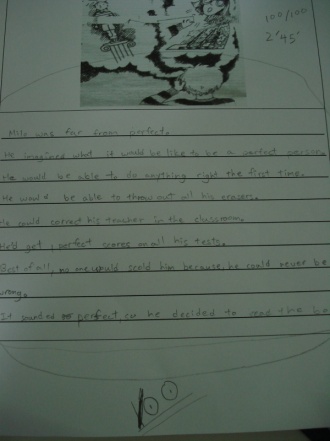 100/100
2'45"
Milo was far from perfect.
He imagined what it would be like to be a perfect person.
He would be able to do anything right the first time.
He would be able to throw out all his erasers.
He could correct his teacher in the classroom.
He'd get perfect scores on all his tests.
Best of all, no one would scold him because, he could never be
wrong.
It sounded perfect, so he decided to read the bo
100